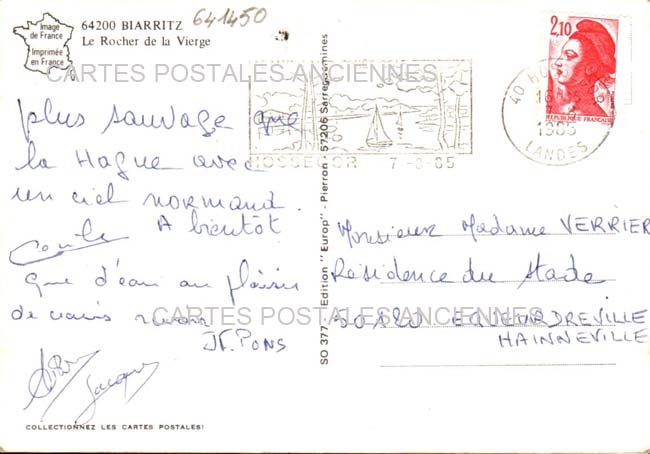 Image
de France
Imprimée
en France
64200 BIARRITZ
Le Rocher de la Vierge
641450
CARTES POSTALES ANCIENNES
plus sauvage que
la Hague avec
un ciel normand.
A bientôt
que d'eau au plaisir
de vous revoir
JF. PONS
Jacques
COLLECTIONNEZ LES CARTES POSTALES!
SO 377 - Edition "Europ" - Pierron - 57206 Sarreguemines
HOSSEGOR 7-8-85
2,10
REPUBLIQUE FRANÇAISE
40
1985
LANDES
Monsieur Madame VERRIER
Résidence du Stade
50120 EQUEURDREVILLE
HAINNEVILLE
CARTES POSTALES ANCIENNES